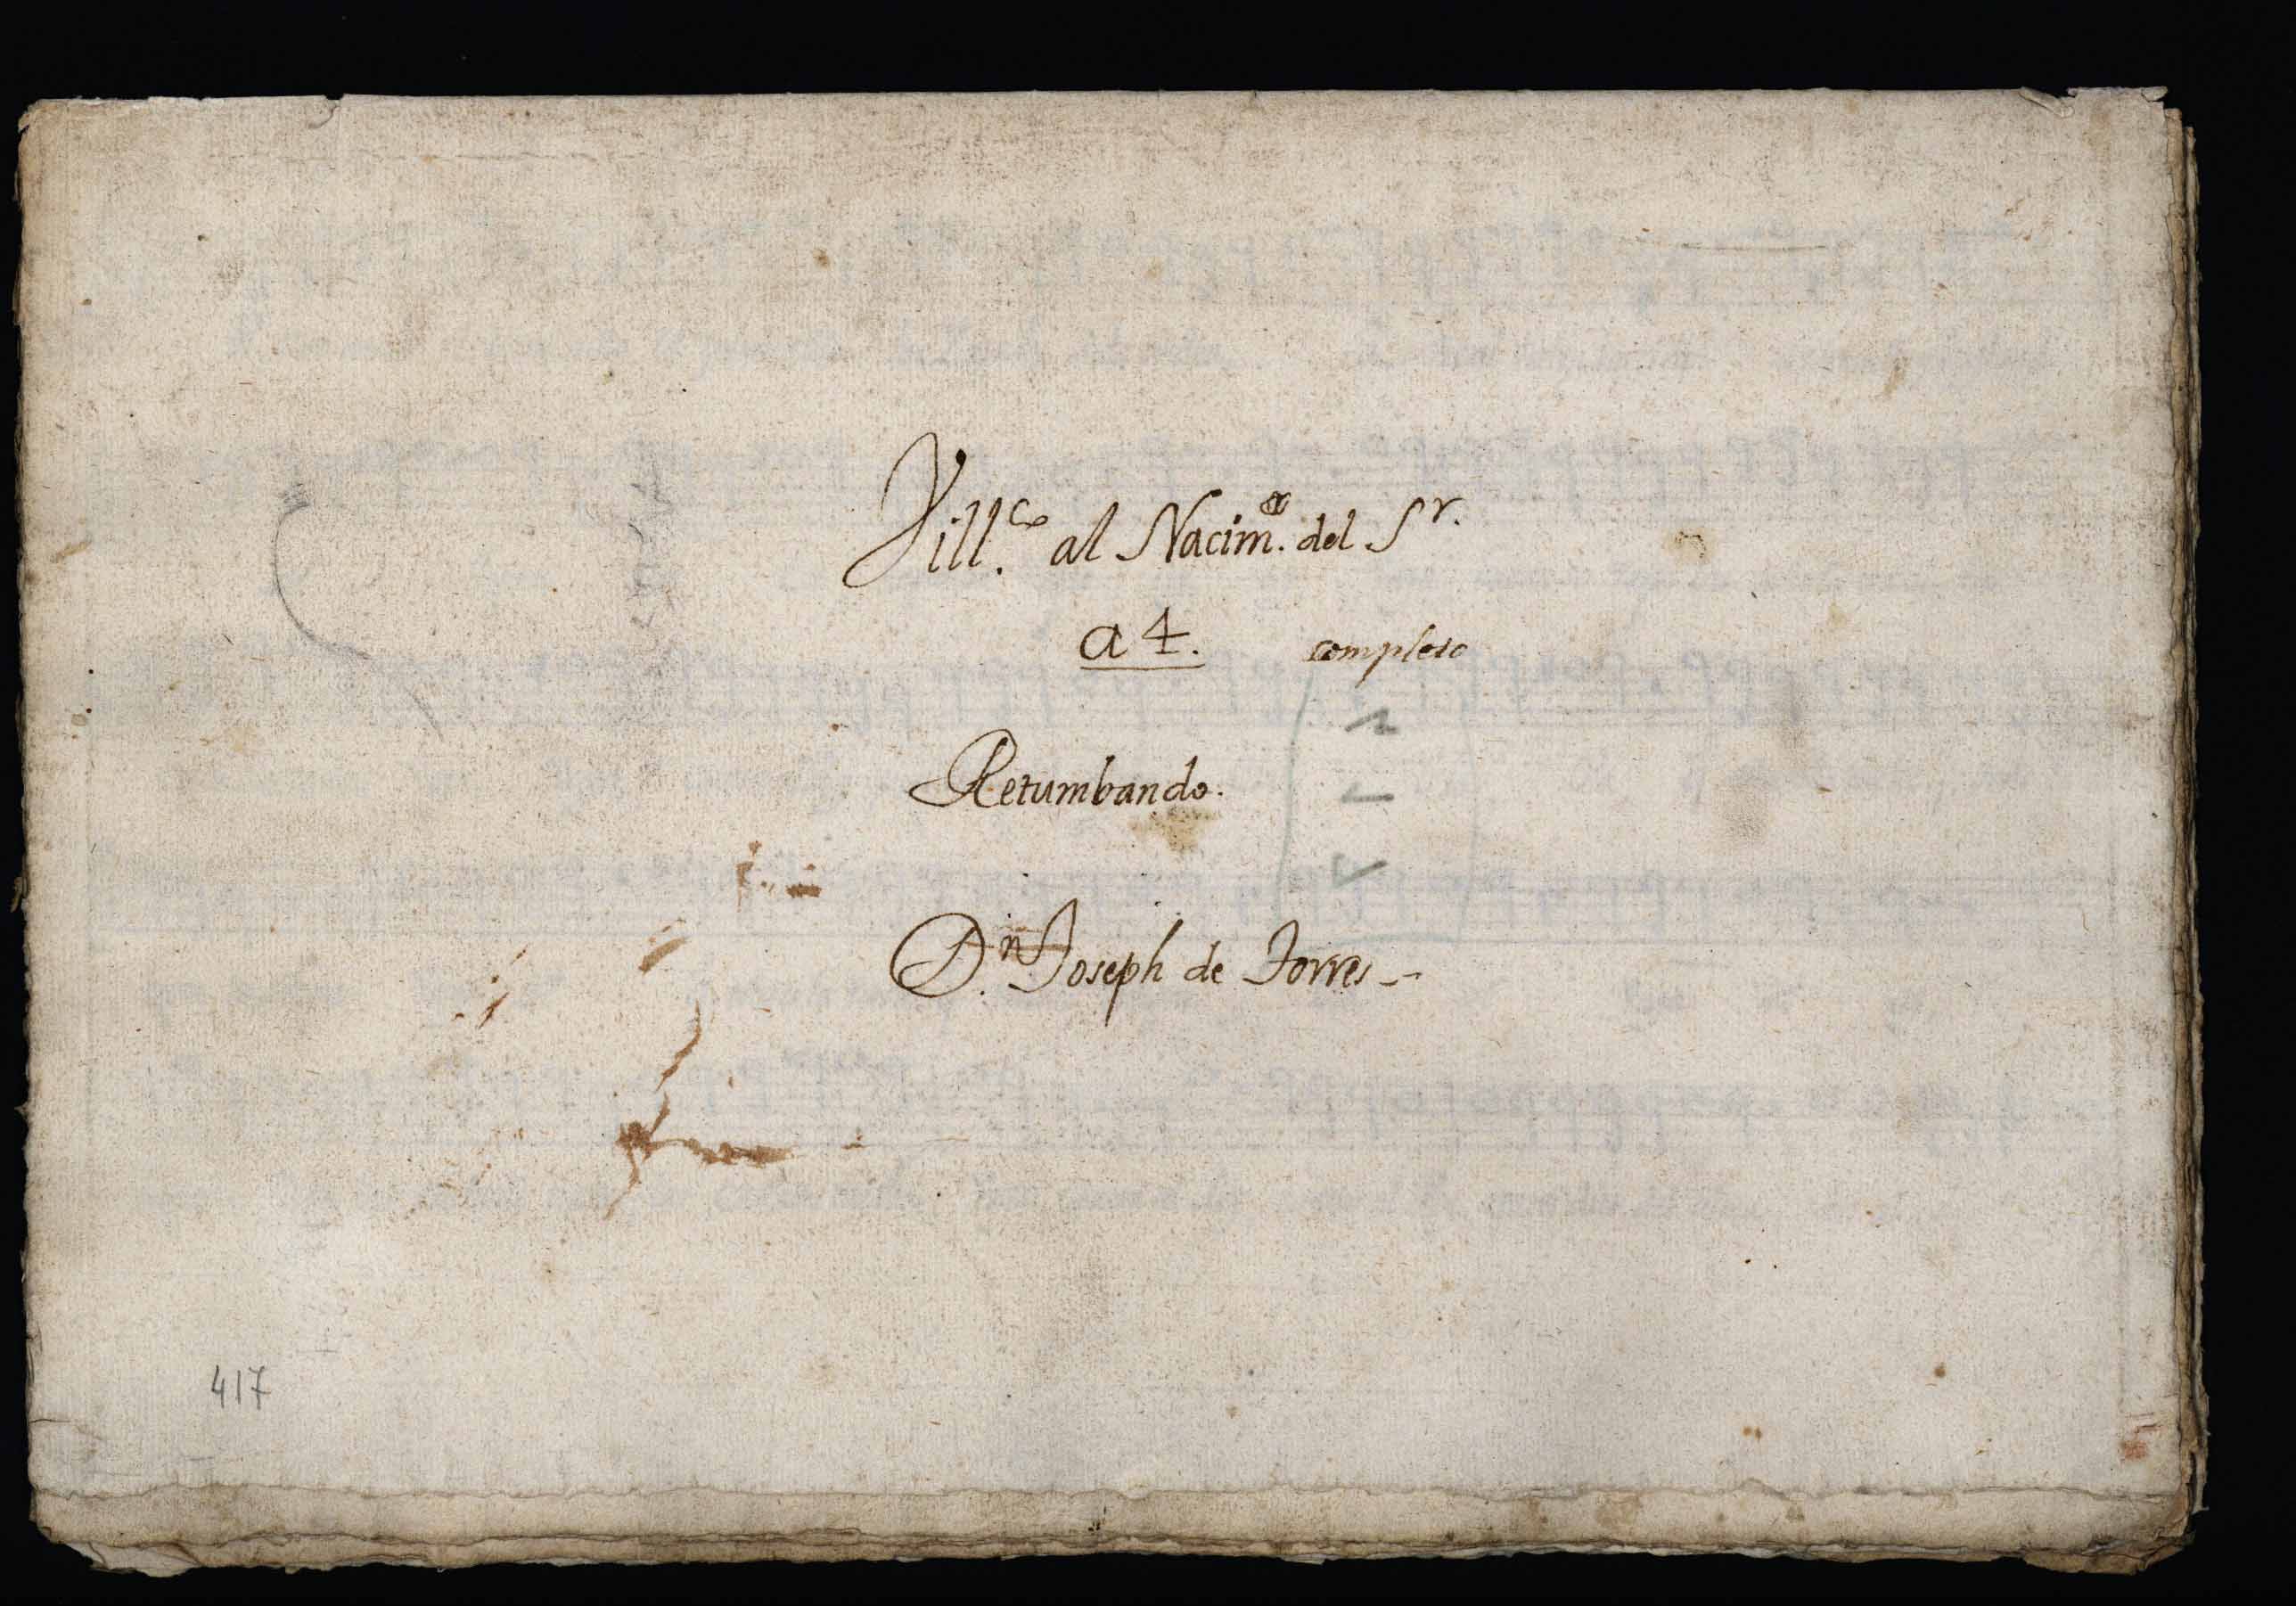 Vill.co al Nacim.to del Sr.
a 4. completo
Retumbando.
D.n Joseph de Torres
417